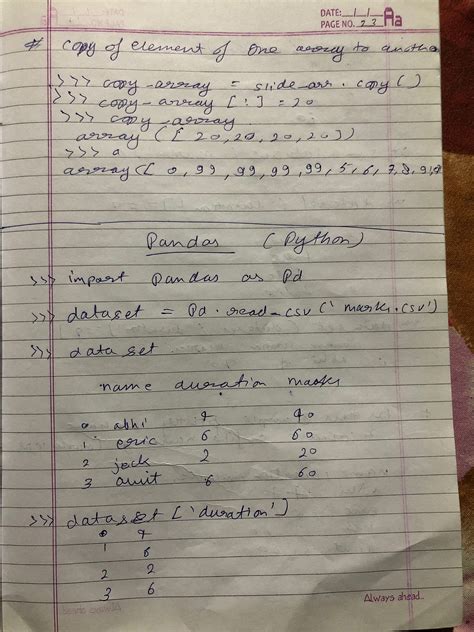 DATE: / /
PAGE NO. 23
Aa
# copy of element of one array to another
>>> copy-array = slide-arr.copy()
>>> copy-array[:] = 20
>>> copy-array
array([20,20,20,20])
>>> a
array([0,99,99,99,99,5,6,7,8,9,
Pandas (Python)
>>> import Pandas as Pd
>>> dataset = Pd.read-csv('marks.csv')
>>> dataset
name duration marks
0 abhi 40
1 eric 6 60
2 jack 2 20
3 amit 6 60
>>> dataset['duration']
0
1 6
2 2
3 6
Always ahead..